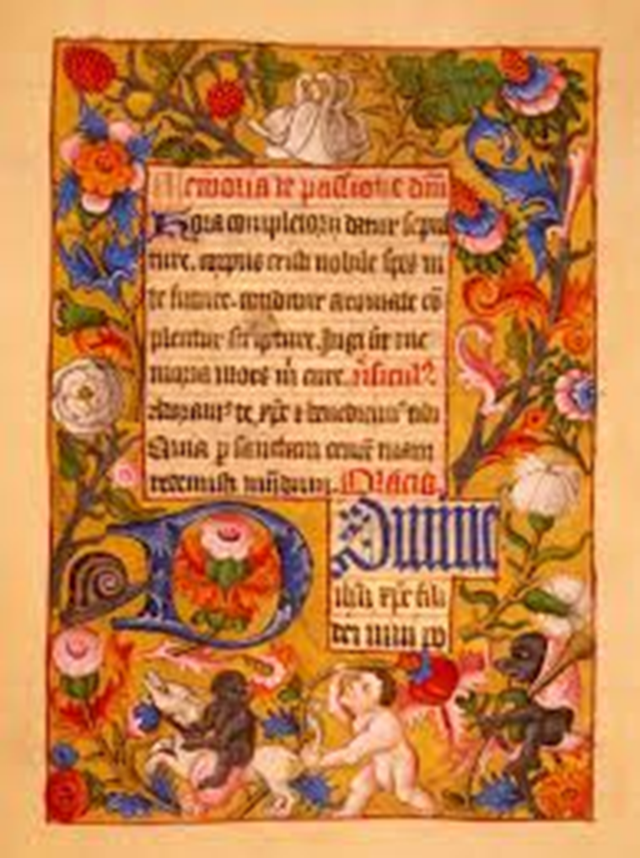 Memoria de passione dn̄i
Hora completorii datur sepul
ture. corpus cristi nobile spes vi
te future. conditur aromate cō
plentur scripture. Jugi sit me
moria mors
Adoramꝰ te xp̄e & benedicimꝰ tibi
Quia p sanctam crucē tuam
redemisti mūdum. Oracio.
Domine
ih̄u xp̄e fili
dei uiui